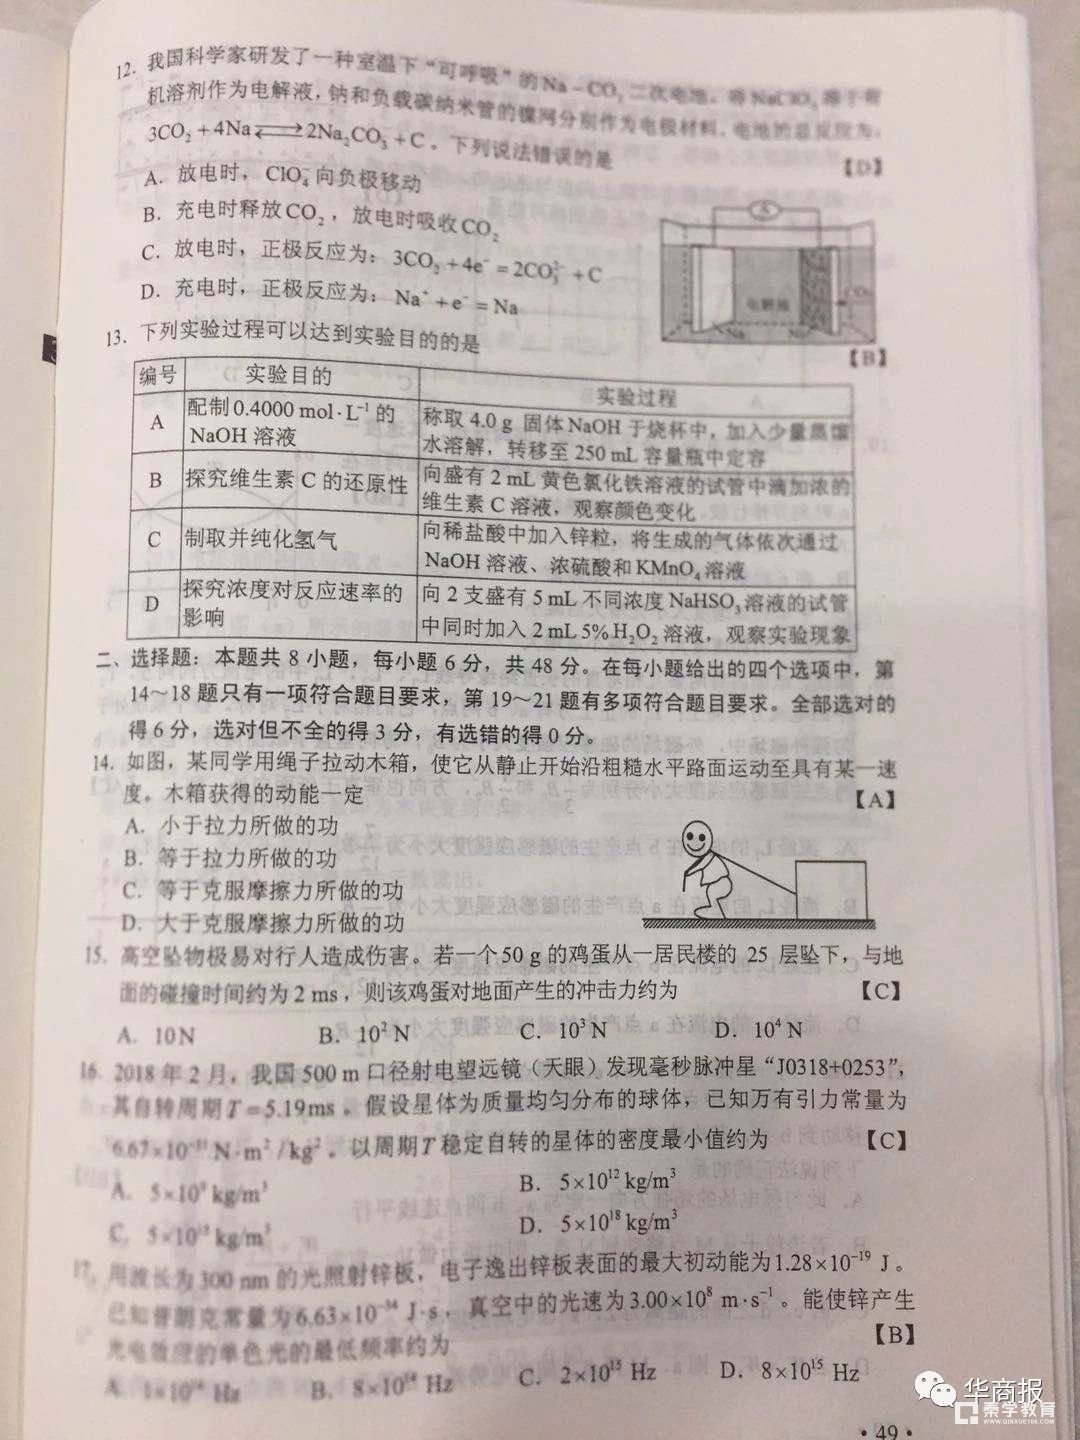 12. 我国科学家研发了一种室温下“可呼吸”的Na－CO₂二次电池。将NaClO₄溶于有
机溶剂作为电解液，钠和负载碳纳米管的镍网分别作为电极材料，电池的总反应为：
3CO₂＋4Na⇌2Na₂CO₃＋C。下列说法错误的是 【D】
A. 放电时，ClO₄⁻向负极移动
B. 充电时释放CO₂，放电时吸收CO₂
C. 放电时，正极反应为：3CO₂＋4e⁻＝2CO₃²⁻＋C
D. 充电时，正极反应为：Na⁺＋e⁻＝Na
电解液
13. 下列实验过程可以达到实验目的的是 【B】
编号 实验目的 实验过程
A 配制0.4000 mol·L⁻¹的 称取 4.0 g 固体NaOH于烧杯中，加入少量蒸馏
NaOH 溶液 水溶解，转移至 250 mL 容量瓶中定容
B 探究维生素 C 的还原性 向盛有 2 mL 黄色氯化铁溶液的试管中滴加浓的
维生素 C 溶液，观察颜色变化
C 制取并纯化氢气 向稀盐酸中加入锌粒，将生成的气体依次通过
NaOH 溶液、浓硫酸和KMnO₄溶液
D 探究浓度对反应速率的 向 2 支盛有 5 mL 不同浓度 NaHSO₃溶液的试管
影响 中同时加入 2 mL 5% H₂O₂ 溶液，观察实验现象
二、选择题：本题共 8 小题，每小题 6 分，共 48 分。在每小题给出的四个选项中，第
14～18 题只有一项符合题目要求，第 19～21 题有多项符合题目要求。全部选对的
得 6 分，选对但不全的得 3 分，有选错的得 0 分。
14. 如图，某同学用绳子拉动木箱，使它从静止开始沿粗糙水平路面运动至具有某一速
度。木箱获得的动能一定 【A】
A. 小于拉力所做的功
B. 等于拉力所做的功
C. 等于克服摩擦力所做的功
D. 大于克服摩擦力所做的功
15. 高空坠物极易对行人造成伤害。若一个50 g 的鸡蛋从一居民楼的 25 层坠下，与地
面的碰撞时间约为 2 ms，则该鸡蛋对地面产生的冲击力约为 【C】
A. 10 N B. 10² N C. 10³ N D. 10⁴ N
16. 2018 年 2 月，我国 500 m 口径射电望远镜（天眼）发现毫秒脉冲星“J0318+0253”，
其自转周期 T＝5.19 ms。假设星体为质量均匀分布的球体，已知万有引力常量为
6.67×10⁻¹¹ N·m²/kg²。以周期T 稳定自转的星体的密度最小值约为 【C】
A. 5×10⁹ kg/m³ B. 5×10¹² kg/m³
C. 5×10¹⁵ kg/m³ D. 5×10¹⁸ kg/m³
17. 用波长为 300 nm 的光照射锌板，电子逸出锌板表面的最大初动能为1.28×10⁻¹⁹ J。
已知普朗克常量为6.63×10⁻³⁴ J·s，真空中的光速为3.00×10⁸ m·s⁻¹。能使锌产生
光电效应的单色光的最低频率约为 【B】
A. 1×10¹⁴ Hz B. 8×10¹⁴ Hz C. 2×10¹⁵ Hz D. 8×10¹⁵ Hz
华商报
秦学教育
WWW.QINXUE100.COM
·49·